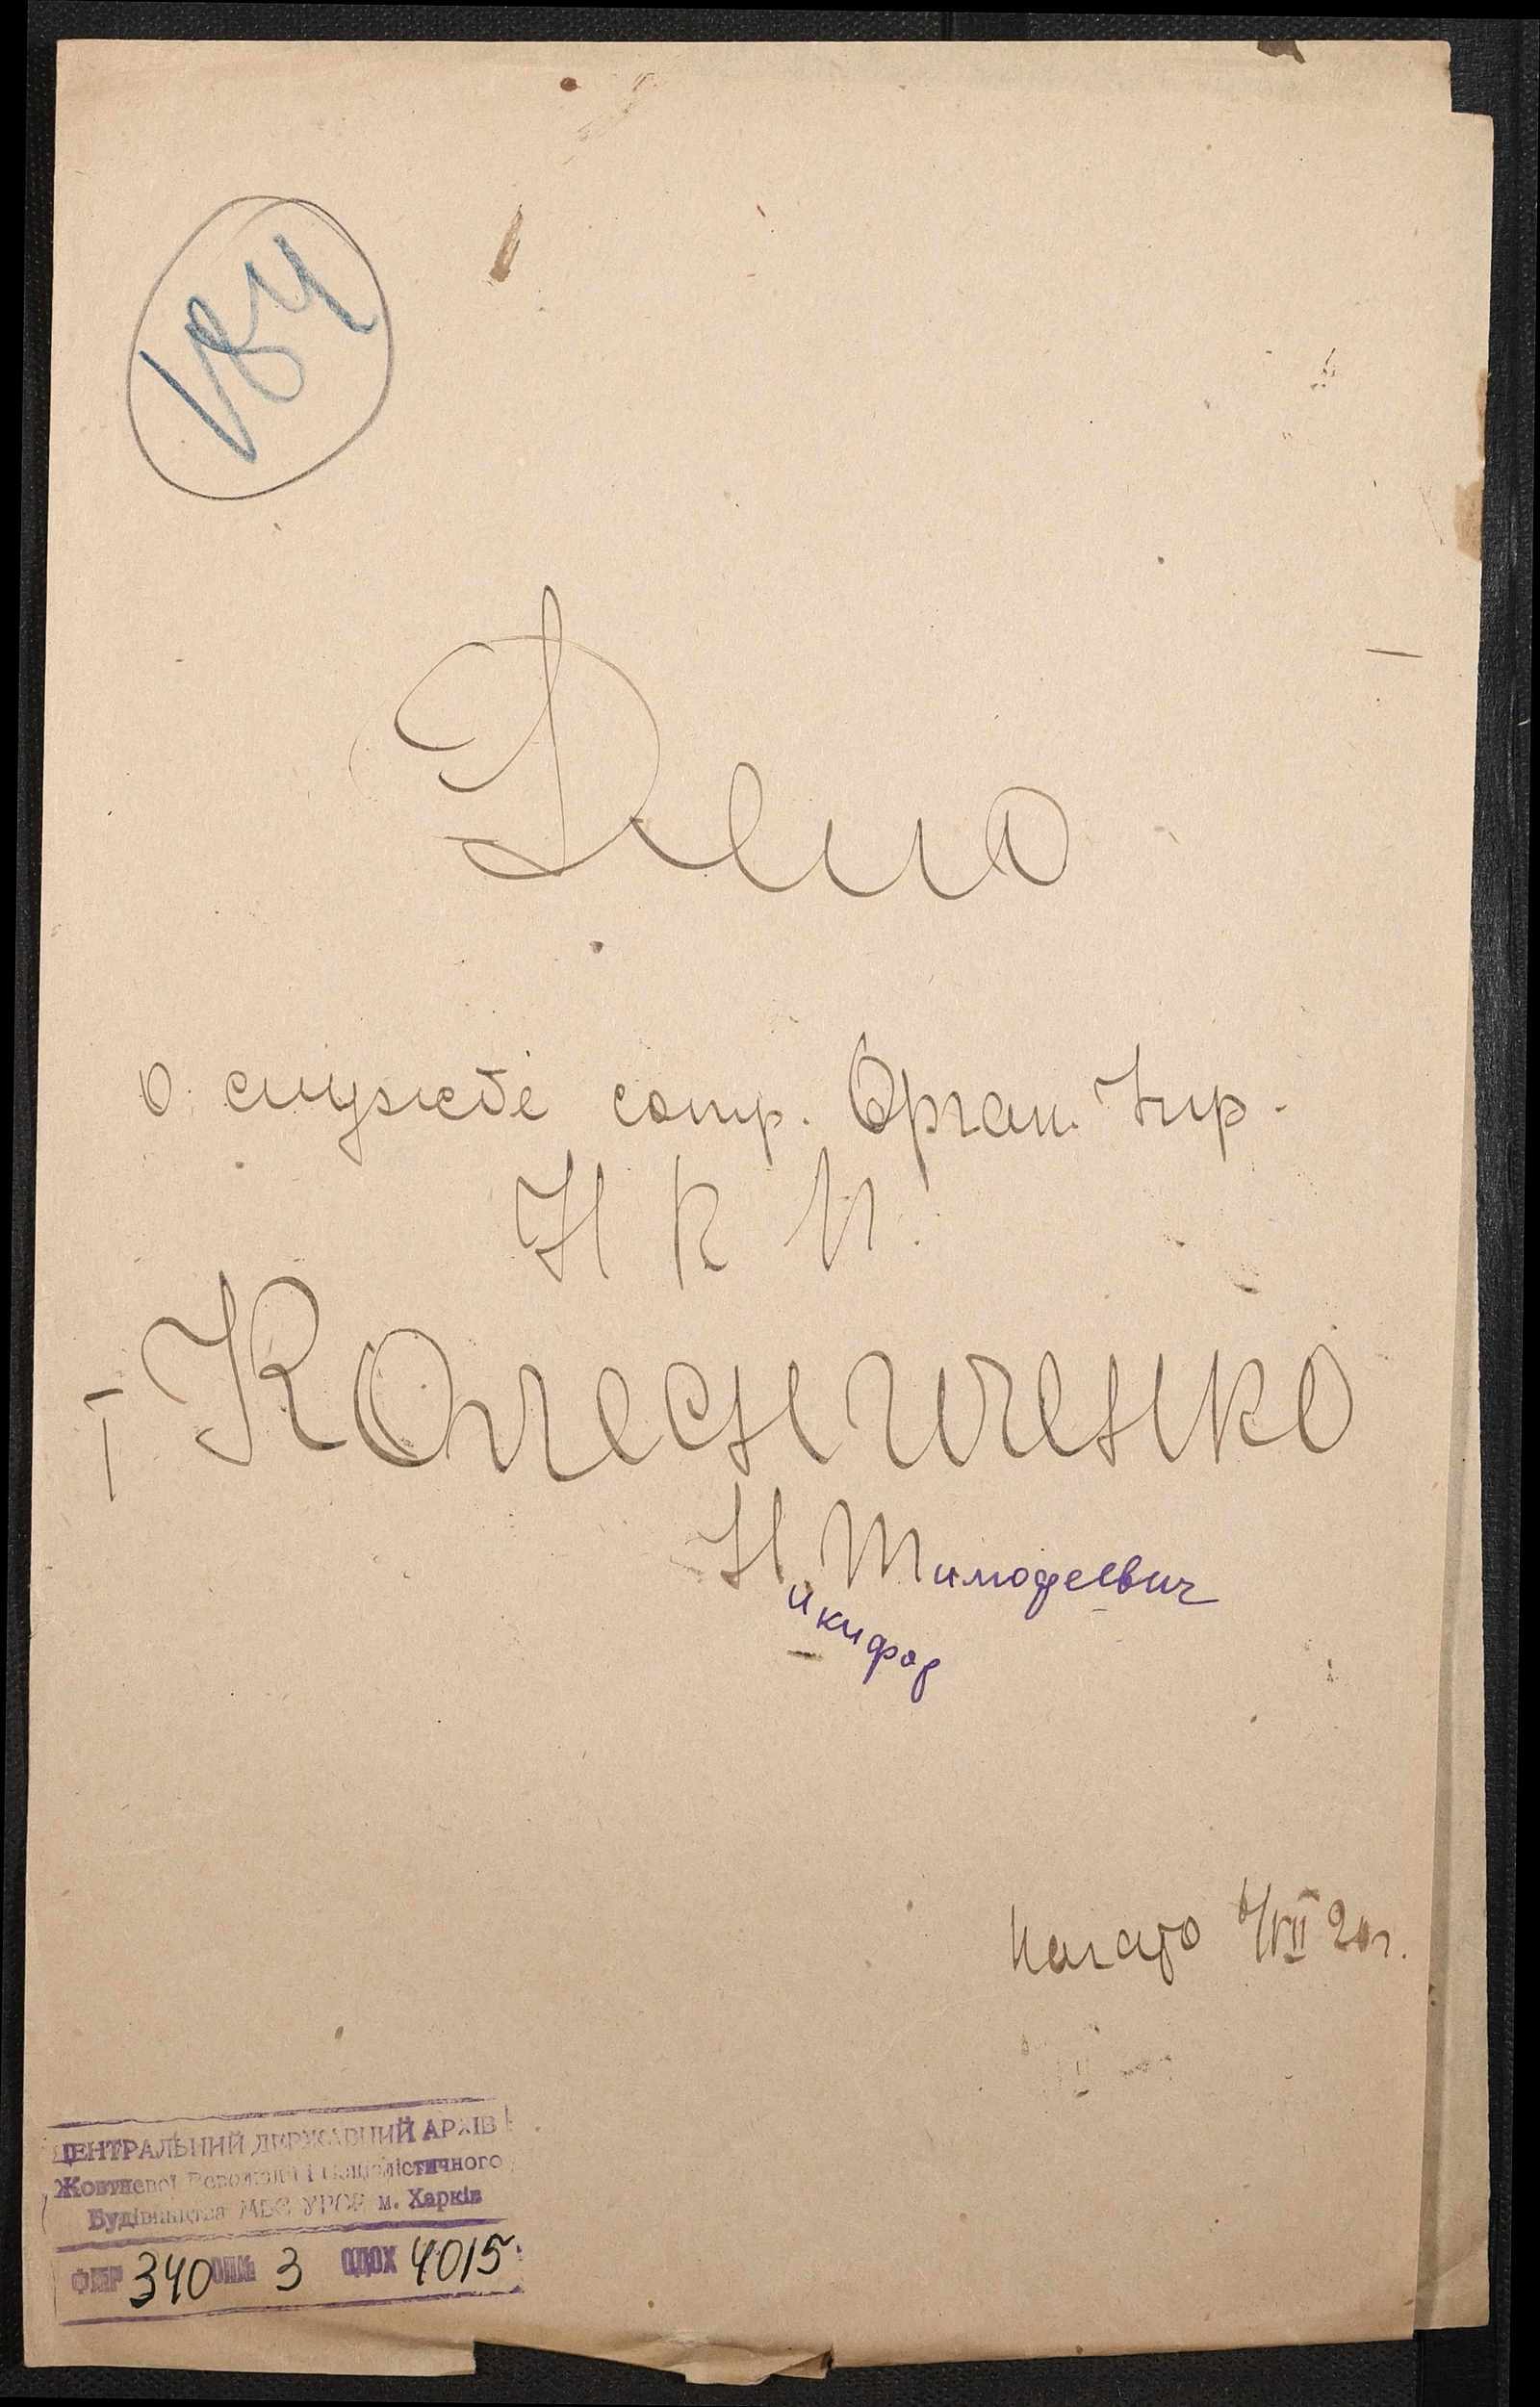 Дело
о службе сотр. Орган. Упр.
Н К П
Колесниченко
Н. Тимофеевич
икифор
Начато 6/VII 20 г.
ЦЕНТРАЛЬНИЙ ДЕРЖАВНИЙ АРХІВ
Жовтневої Революції і соціалістичного
Будівництва МВС УРСР м. Харків
340 3 4015